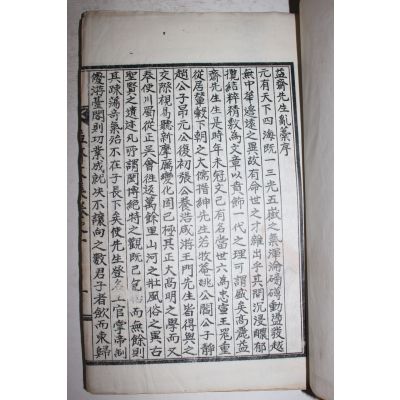 益齋先生亂藁序
元有天下四海旣一三光五嶽之氣渾淪磅礴動盪發越
無中華邊遠之異故有命世之才雜出乎其間沉浸醲郁
攬結粹精敷爲文章以賁飾一代之理可謂盛矣高麗益
齋先生生是時年未冠文已有名當世大爲忠宣王器重
從居輦轂下朝之大儒搢紳先生若牧菴姚公閻公子靜
趙公子昂元公復初張公養浩咸游王門先生皆得與之
交際視易聽新摩厲變化固已極其正大高明之學而又
奉使川蜀從王吳會往返萬餘里山河之壯風俗之異古
聖賢之遺迹凡所謂閎博絶特之觀旣已包括而無餘則
其疎蕩奇氣殆不在子長下矣使先生登名王官掌帝制
優游臺閣則功業成就決不讓向之數君子者斂而東歸